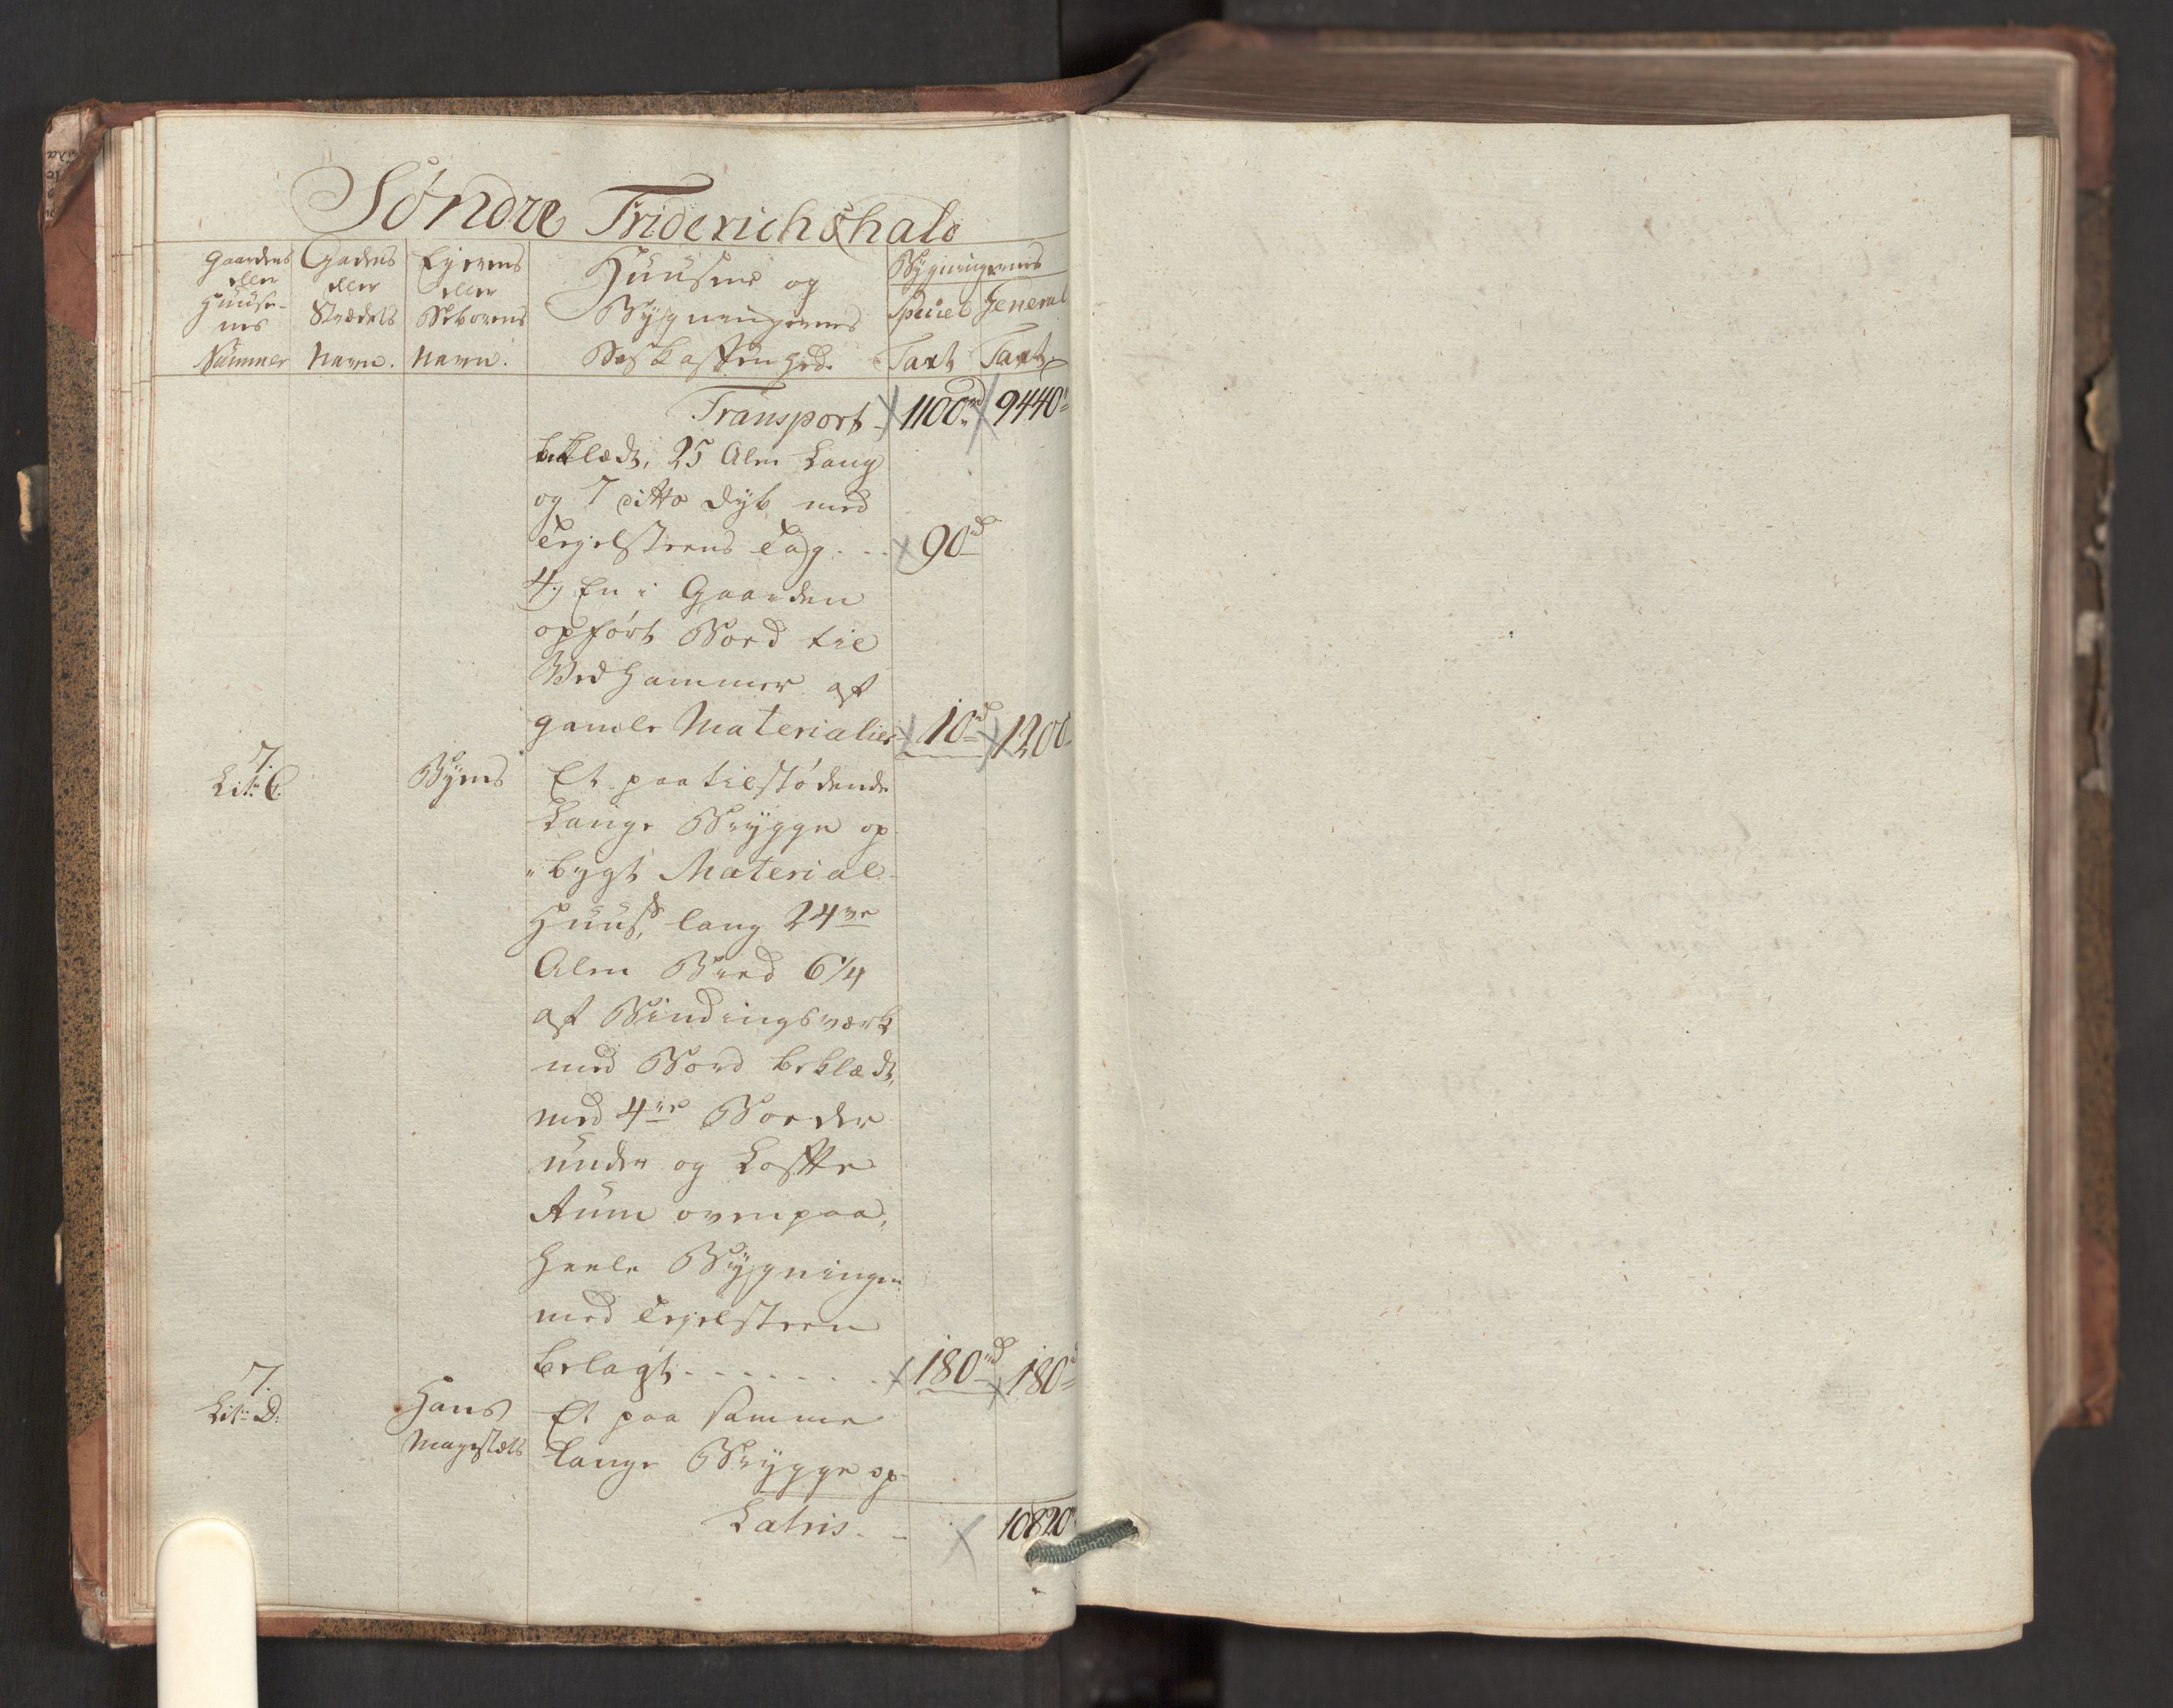 Søndre Friderichshald
Gaardens eller Huuse- nes Nummer
Gadens eller Strædets Navn.
Ejerens eller Beboerens Navn.
Huusene og Bygningernes Beskaffenhed
Bygningernes
Speciel Taxt
General Taxt
Transport 1100rd 9440"
beklædt, 25 Alen Lang
og 7 ditto dyb med
Tegelsteens Tag . . . 90rd
4) En i Gaarden
opført Bord til
Vedhammer af
gamle Materialier 10rd 1200
7.
Litr: C. Byens Et paa tilstødende
Lange Brygge op
"bygt Material
Huus, lang 24ve
Alen Bred 6 1/4
af Bindingsværk
med Bord beklædt,
med 4re Boeder
under og Loffte
Rum ovenpaa,
heele Bygningen
med Tegelsteen
belagt . . . . . . . 180rd 180rd
7.
Litr: D. Hans Et paa samme
Magestæts Lange Brygge op-
Latris. - 10820